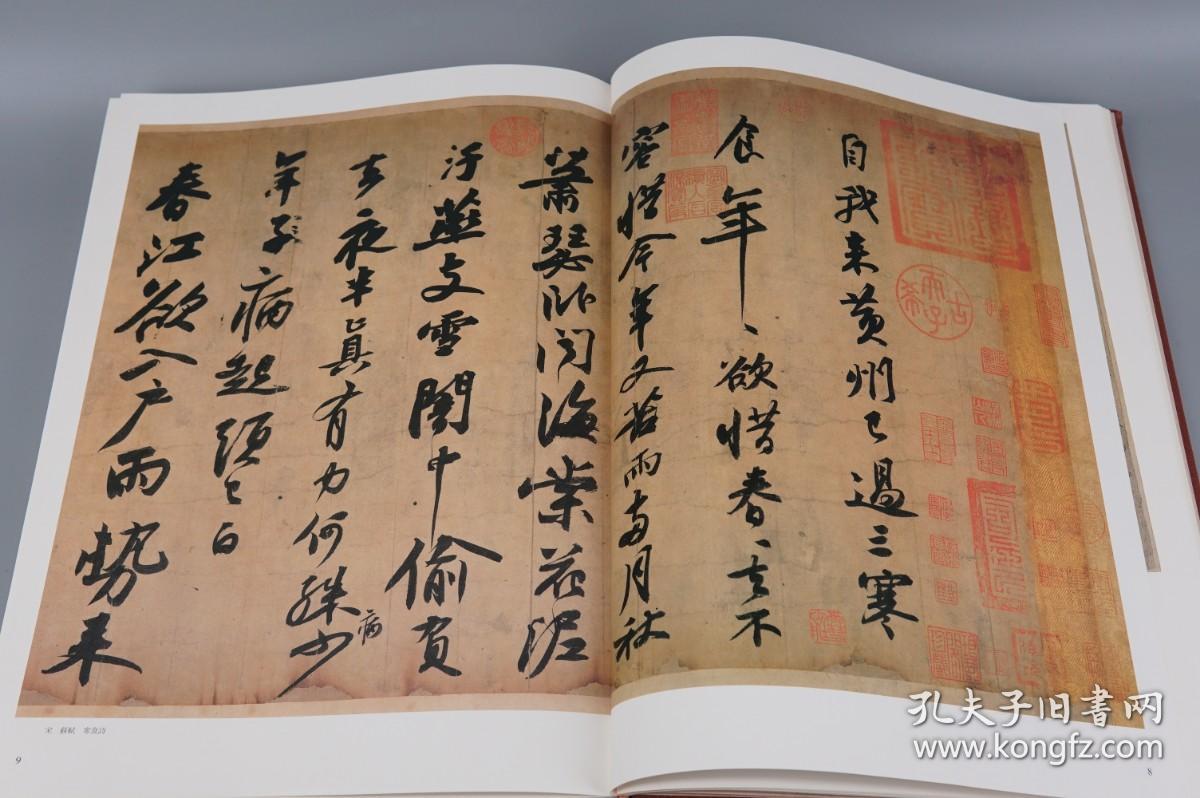 自我来黄州已過三寒
食年〻欲惜春〻去不
容惜今年又苦雨兩月秋
蕭瑟卧聞海棠花泥
汙燕支雪闇中偷負
去夜半真有力何殊少
病
年子病起頭已白
春江欲入户雨勢来
古希天子
宋 蘇軾 寒食詩
9
8
孔夫子旧书网
www.kongfz.com